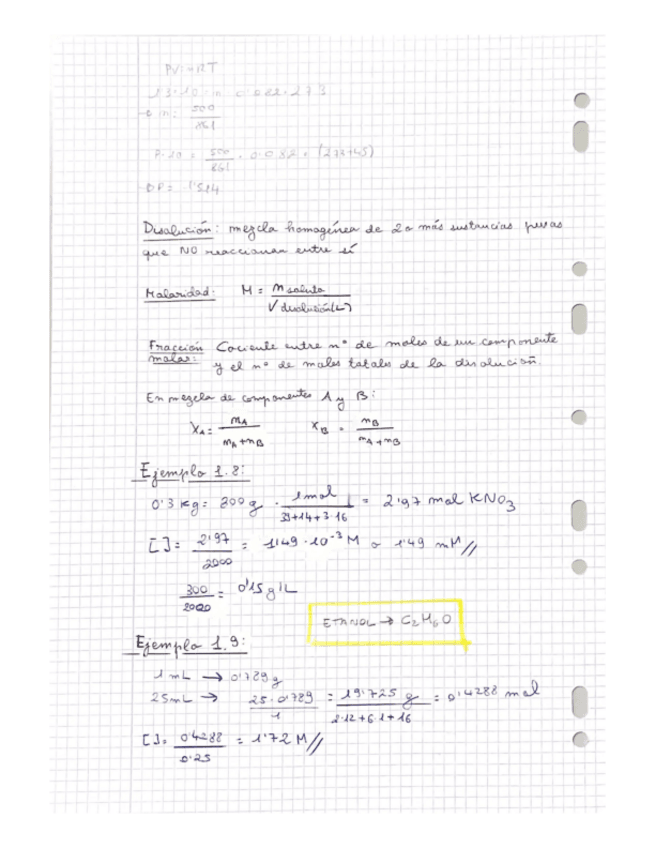 PV=nRT
1'3·10=n 0'082·273
n: 500/161
P·10 = 500/161 · 0'082 · (273+45)
P= 1'514
Disolución: mezcla homogénea de 2 o más sustancias puras
que NO reaccionan entre sí
Molaridad: M = n soluto / V disolución(L)
Fracción molar: Cociente entre nº de moles de un componente
y el nº de moles totales de la disolución.
En mezcla de componentes A y B:
XA = nA/(nA+nB) XB = nB/(nA+nB)
Ejemplo 1.8:
0'3 kg = 300 g · 1 mol/(39+14+3·16) = 2'97 mol KNO3
[ ]= 2'97/2000 = 1'149·10^-3 M o 1'49 mM//
300/2000 = 0'15 g/L
ETHNOL → C2H6O
Ejemplo 1.9:
1 mL → 0'789 g
25 mL → 25·0'789/1 = 19'725 g/(2·12+6·1+16) = 0'4288 mol
[ ]= 0'4288/0'25 = 1'72 M//